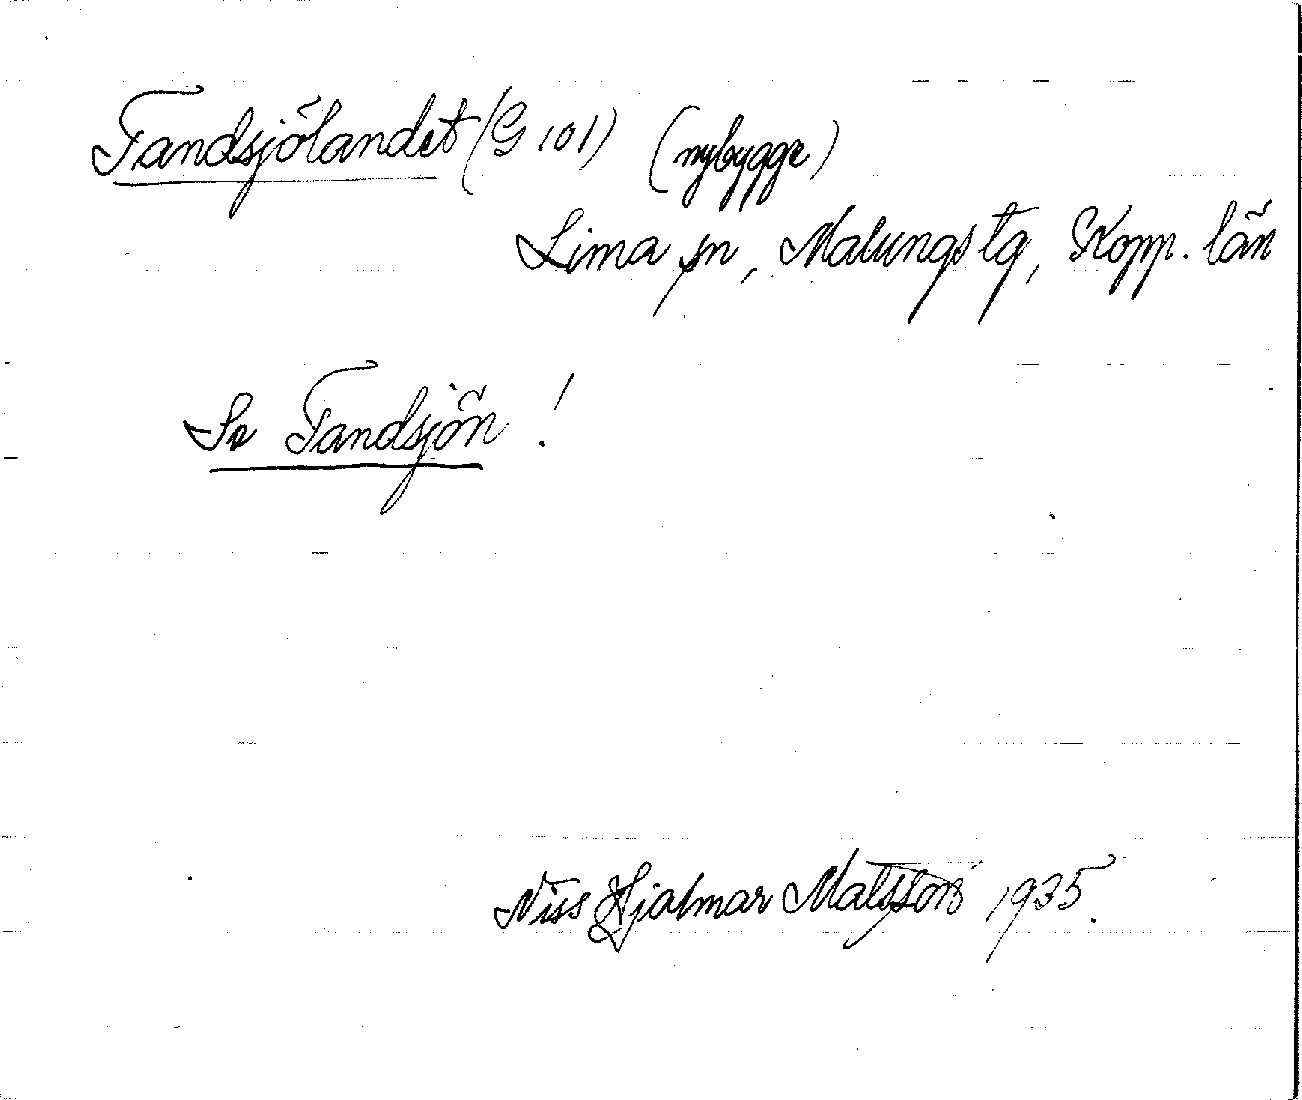 Tandsjölandet (G 101) (nybygge)
Lima sn, Malungs tg, Kopp. län
Se Tandsjön!
Niss Hjalmar Matsson 1935.